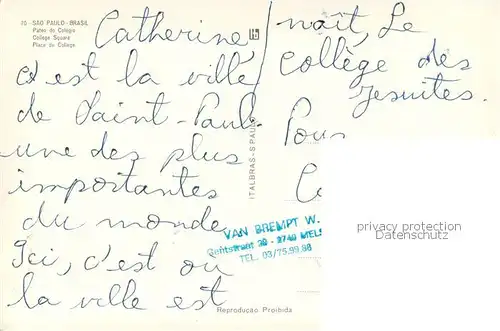 75 - SÃO PAULO - BRASIL
Pateo do Colégio
College Square
Place du College
Catherine,
c'est la ville
de Saint-Paul.
une des plus
importantes
du monde
Ici, c'est où
la ville est
naît, Le
collège des
Jesuites.
Pour
ITALBRAS - S PAULO
VAN BREMPT W.
Gentstraat
TEL. 03/75.99.88
Reprodução Proibida
privacy protection
Datenschutz